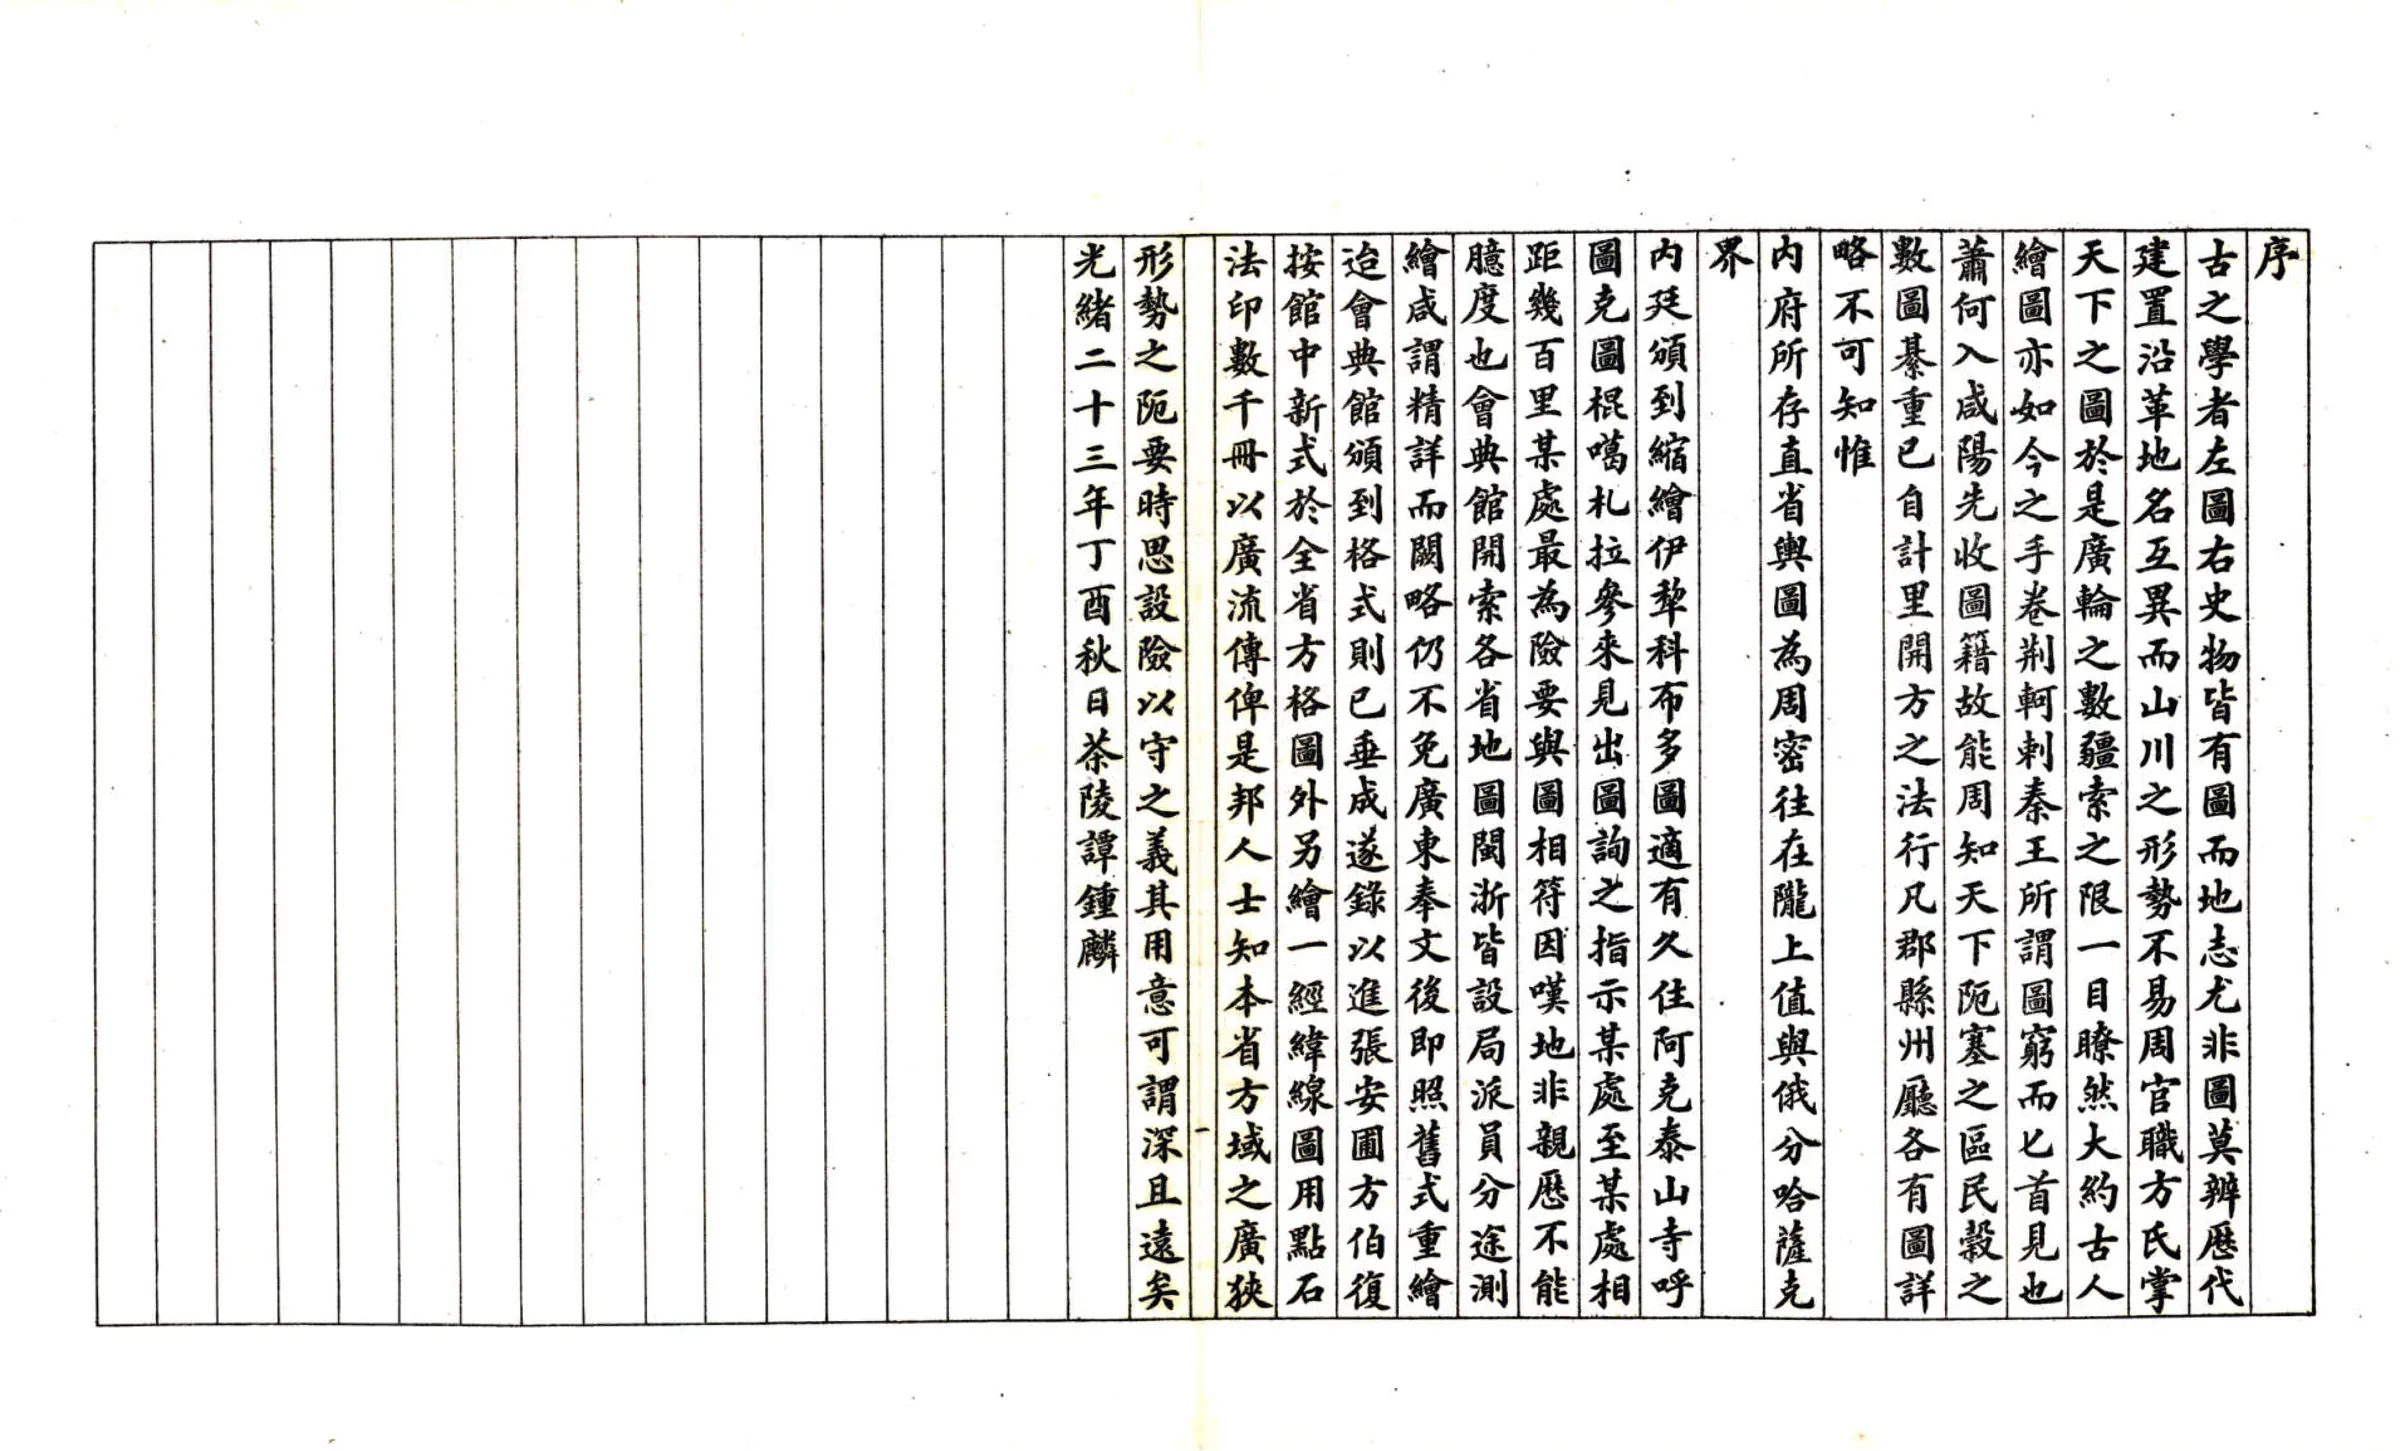 序
古之學者左圖右史物皆有圖而地志尤非圖莫辨歷代
建置沿革地名互異而山川之形勢不易周官職方氏掌
天下之圖於是廣輪之數疆索之限一目瞭然大約古人
繪圖亦如今之手卷荆軻刺秦王所謂圖窮而匕首見也
蕭何入咸陽先收圖籍故能周知天下阨塞之區民穀之
數圖綦重已自計里開方之法行凡郡縣州廳各有圖詳
略不可知惟
内府所存直省輿圖為周密往在隴上值與俄分哈薩克
界
内廷頒到縮繪伊犂科布多圖適有久住阿克泰山寺呼
圖克圖棍噶札拉參來見出圖詢之指示某處至某處相
距幾百里某處最為險要與圖相符因嘆地非親歷不能
臆度也會典館開索各省地圖閩浙皆設局派員分途測
繪咸謂精詳而闕略仍不免廣東奉文後即照舊式重繪
迨會典館頒到格式則已垂成遂錄以進張安圃方伯復
按館中新式於全省方格圖外另繪一經緯線圖用點石
法印數千冊以廣流傳俾是邦人士知本省方域之廣狹
形勢之阨要時思設險以守之義其用意可謂深且遠矣
光緒二十三年丁酉秋日茶陵譚鍾麟
一